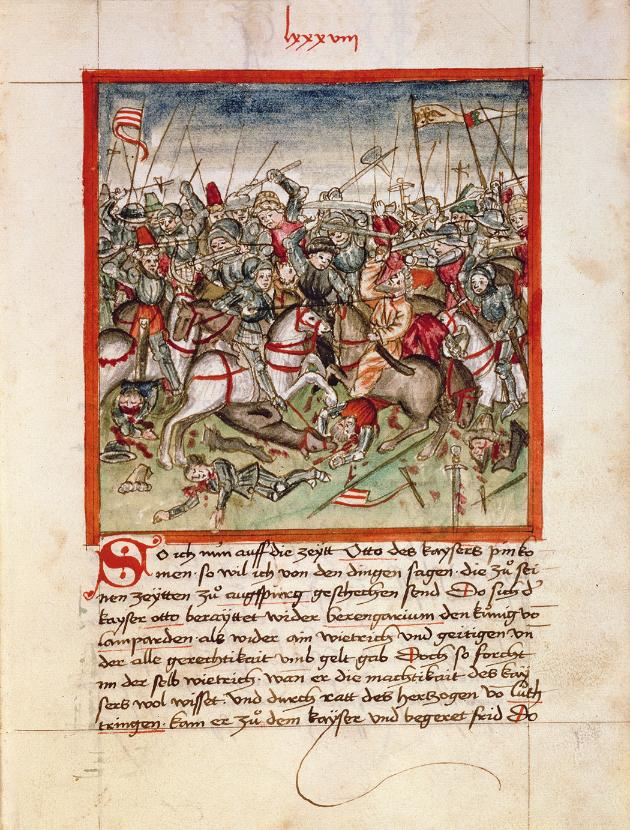 lxxxviii
So ich nun auff die zeytt Otto des kaysers pin ko
men · so wil ich von den dingen sagen · die zů sei
nen zeytten zů augspurg geschechen send Do sich d'
kayser otto berayttet wider berengarium den kůnig vo
lamparden als wider ain wietrich vnd geitigen vn
der alle gerechtikait vmb gelt gab Doch so forcht
im der selb wietrich · wan er die mächtikait des kay
sers wol wisset · vnd durch ratt des hertzogen vo luth
tringen · kam er zů dem kayser vnd begeret frid Do